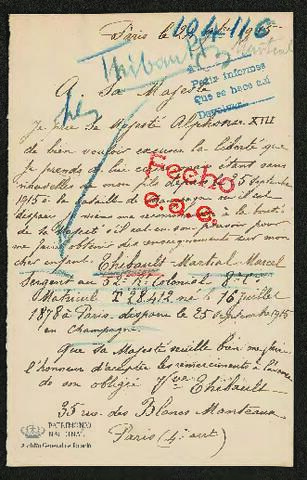 Paris le 1915
104116
Thibault
Martial
Pedir informes
que se hace así
Devolver
A Sa Majesté
Je prie Sa Majesté Alphonse XIII
de bien vouloir excuser la liberté que
je prends de lui étant sans
nouvelles de mon fils depuis le 25 Septembre
1915 à la bataille de Champagne où il est
disparu à la bonté
de Sa Majesté s'il est en son pouvoir pour
me faire obtenir des renseignements sur mon
cher enfant. Thibault Martial Marcel
Sergent au 52e Rt Colonial 8e Cie
Matricul T 28412 né le 16 juillet
1878 à Paris disparu le 25 Septembre 1915
en Champagne
Que Sa Majesté veuille bien me faire
l'honneur d'accepter les remerciements à l'avance
de son obligé Thibault
35 rue des Blancs Manteaux
Paris (4e arrt)
Fecho
PATRIMONIO
NACIONAL
Archivo General de Palacio